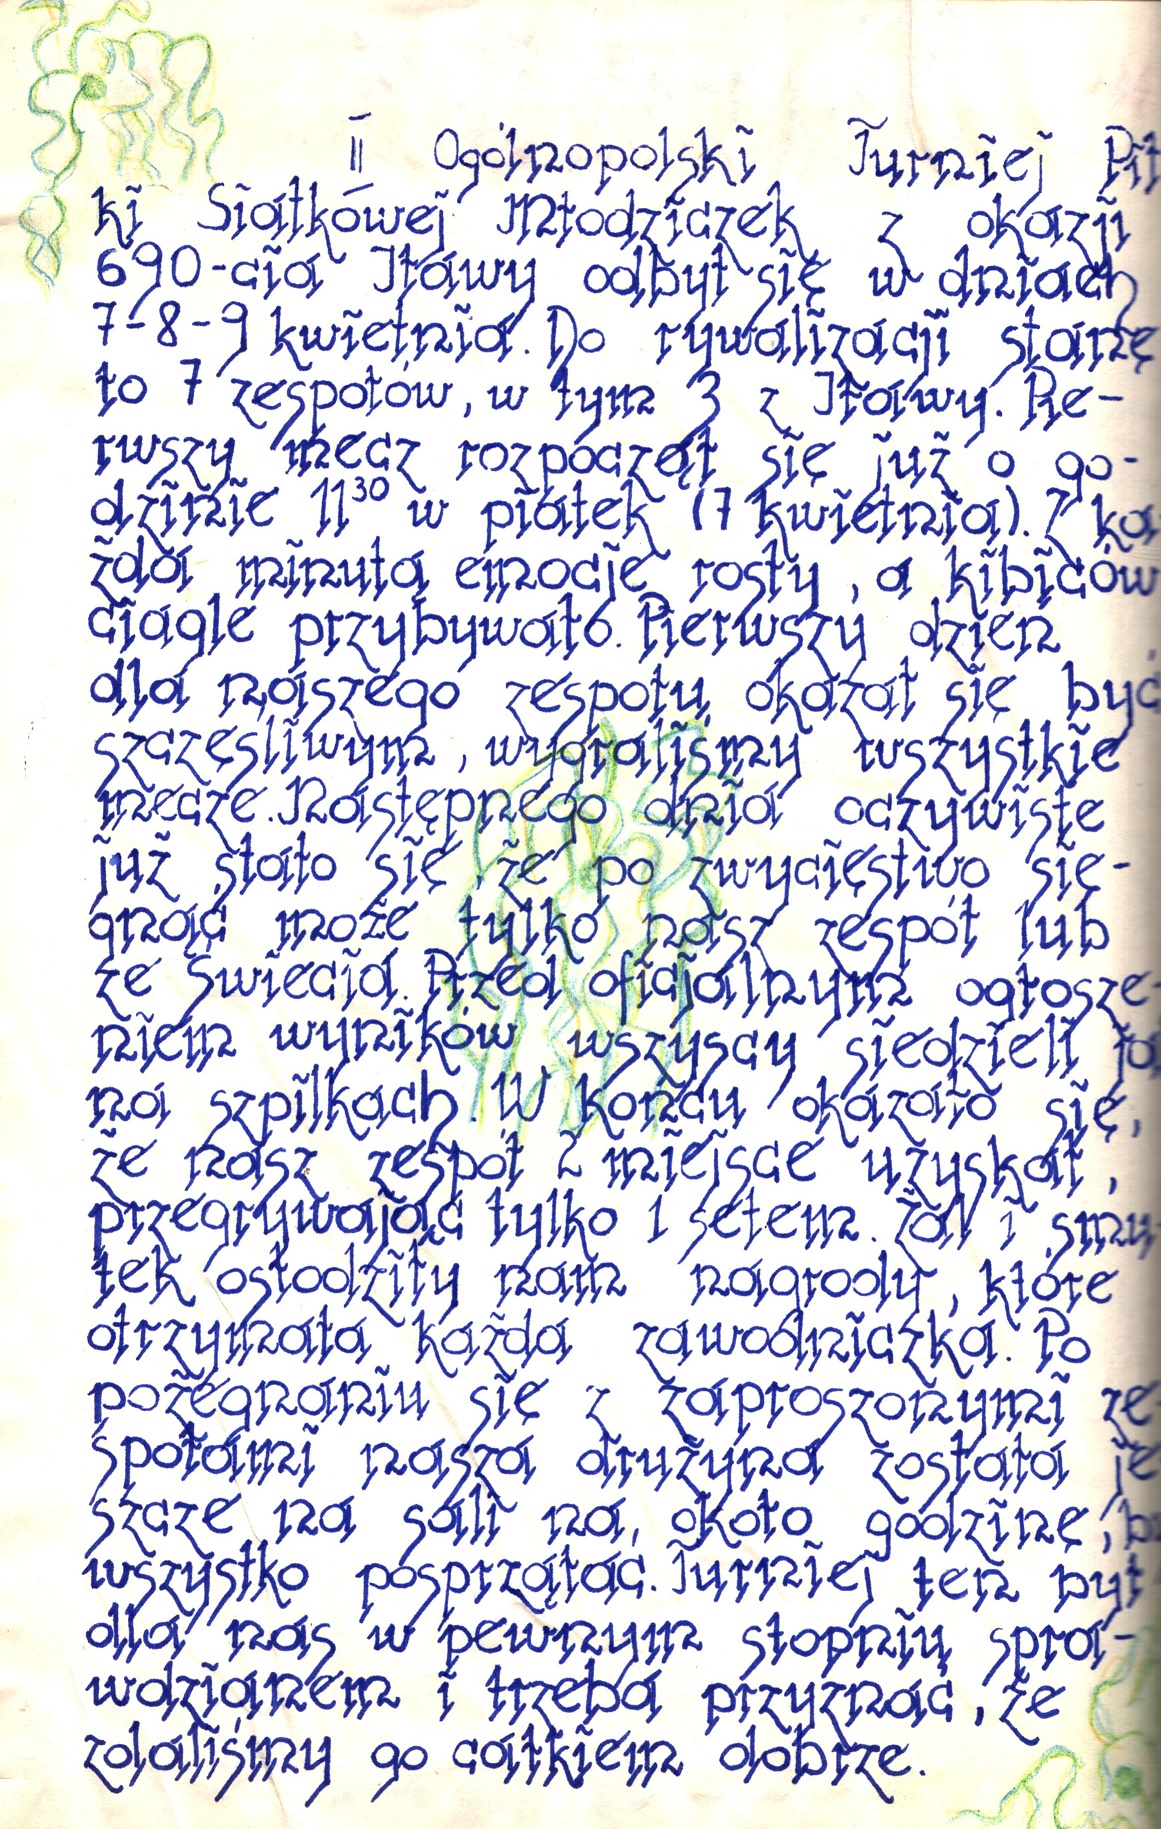 II Ogólnopolski Turniej Pił
ki Siatkówej Młodziczek z okazji
690-cia Iławy odbył się w dniach
7-8-9 kwietnia. Do rywalizacji stanę
ło 7 zespołów, w tym 3 z Iławy. Pie-
rwszy mecz rozpoczął się już o go-
dzinie 11³⁰ w piątek (7 kwietnia). Z ka
żdą minutą emocje rosły, a kibiców
ciągle przybywało. Pierwszy dzień
dla naszego zespołu okazał się być
szczęśliwym, wygraliśmy wszystkie
mecze. Następnego dnia oczywiste
już stało się, że po zwycięstwo się-
gnąć może tylko nasz zespół lub
ze Świecia. Przed oficjalnym ogłosze-
niem wyników wszyscy siedzieli ja
na szpilkach. W końcu okazało się,
że nasz zespół 2 miejsce uzyskał,
przegrywając tylko 1 setem. Żal i smu-
tek osłodziły nam nagrody, które
otrzymała każda zawodniczka. Po
pożegnaniu się z zaproszonymi ze-
społami nasza drużyna została je
szcze na sali na, około godzinę, by
wszystko posprzątać. Turniej ten był
dla nas w pewnym stopniu spra-
wdzianem i trzeba przyznać, że
zdaliśmy go całkiem dobrze.